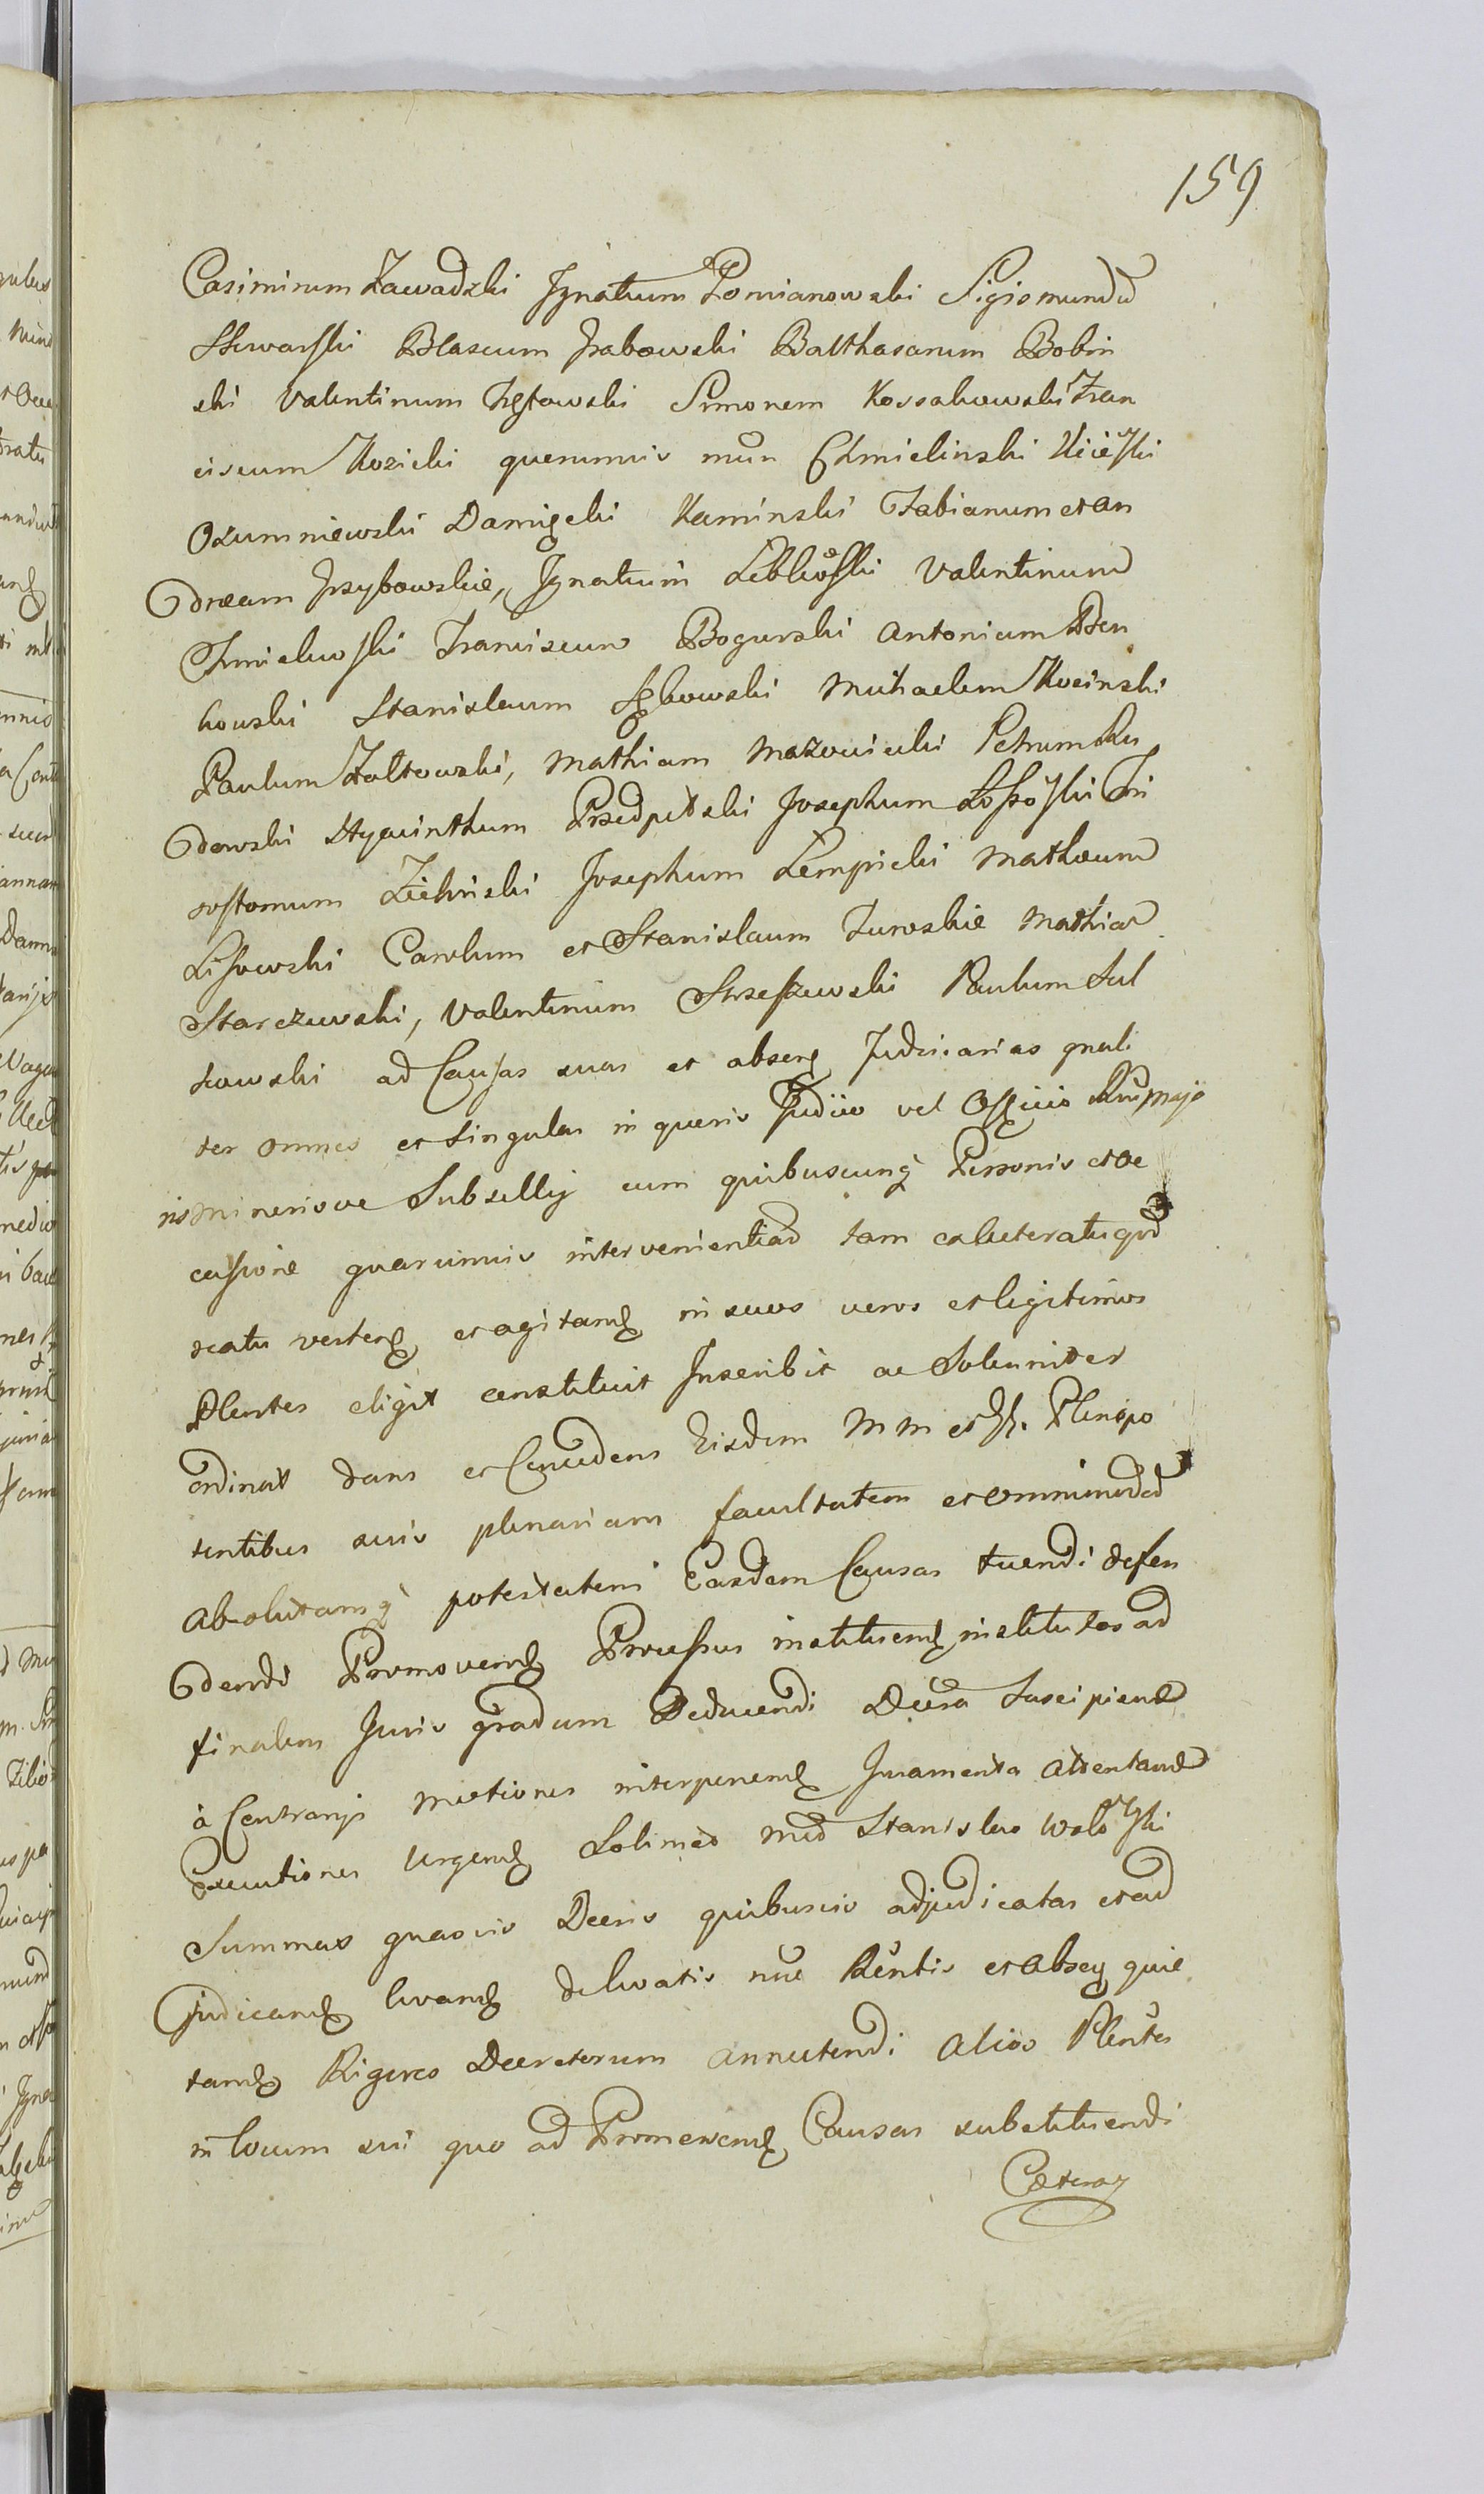 159
Casimirum Zawadzki Ignatium Pomianowski Sigismundū
Skwarski Blasium Grabowski Balthasarum Bobin
ski Valentinum Zgłowski Simonem Kossakowski Fran
ciscum Kozicki quemvis mūn Chmielinski Kicieski
Ozumniewski Damięcki Kaminski Fabianum et An
dream Grzybowskie, Ignatium Lebkōski Valentinum
Chmielewski Franciscum Bogurski Antonium Bien
kowski Stanislaum Sębowski Michaelem Kosinski
Paulum Zołtowski, Mathiam Mazowiecki Petrum Ru
dowski Hyacinthum Przedpełski Josephum Łossōski Chri
sostomum Zielinski Josephum Lempicki Mathæum
Lissowski Carolum et Stanislaum Turoskie Mathiam
Starczewski, Valentinum Strzeszewski Paulum Sul
kowski ad Causas suas et absenq Judiciarias gnali
ter omnes et Singulas in quovis Judicio vel Officio Rni majo
ris minerisve Subsellij cum quibuscunq Personis et oc
casione quarumvis intervenientiarū tam exliteratu quā
reatu vertenq et agitanq in suos veros et legitimos
Plentes eligit constituit Inscribit ac Solenniter
ordinat dans et Concedens Eisdem MM et GG. Plenipo
tentibus suis plenariam facultatem et omnimodā
Absolutamq potestatem Easdem Causas tuendi defen
dendi Promovenq Processus instituenq institutos ad
finalem Juris gradum Deducendi Decreta Suscipiend
à Contrarijs motiones interponenq Juramenta Attentand
Executiones Urgenq Solimēo Mnō Stanislao Wołōski
Summas quasvis Decris quibusvis adjudicatas et ad
judicanq levanq de levatis nūe Rēntis et Absenq quie
tanq Rigores Decretorum Annectendi Alios Plentes
in locum sui quo ad Promovenq Causas substituendi
Cæteraq